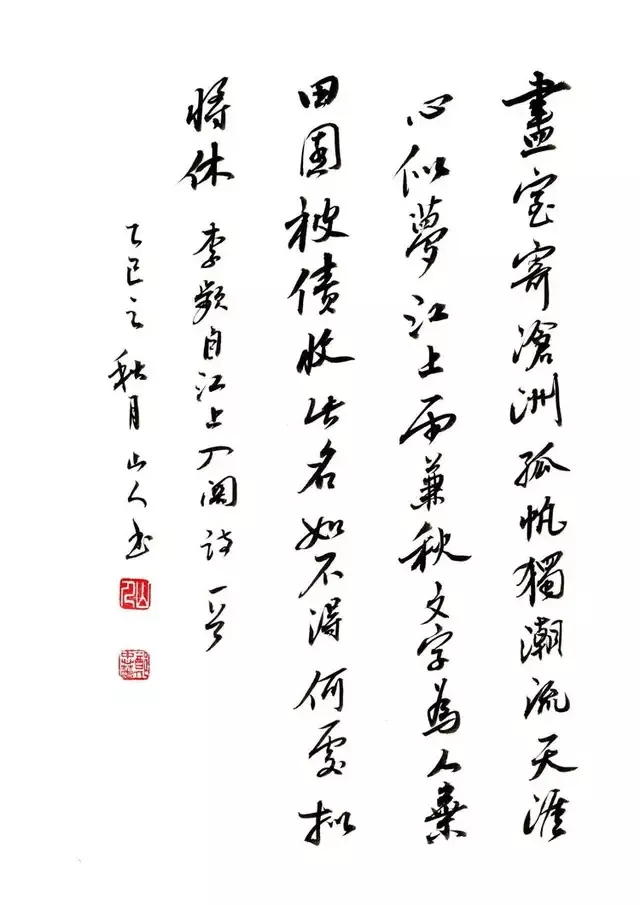 盡室寄滄洲孤帆獨潮流天涯
心似夢江上雨兼秋文字為人棄
田園被債收此名如不得何處拟
將休 李頻自江上入関詩一首
乙巳之秋月山人书
山人